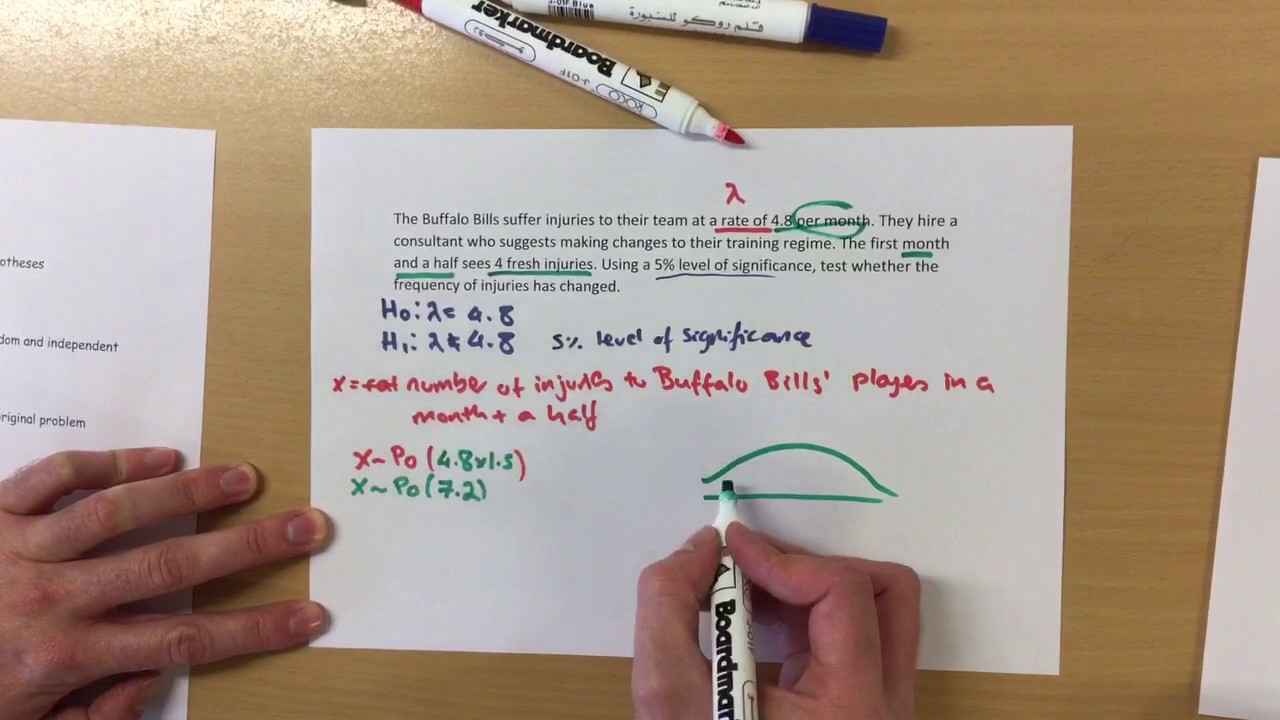 J-01F Blue
قلم روكو للسبورة
Boardmarker
J-01F
ROCO
λ
The Buffalo Bills suffer injuries to their team at a rate of 4.8 per month. They hire a
consultant who suggests making changes to their training regime. The first month
and a half sees 4 fresh injuries. Using a 5% level of significance, test whether the
frequency of injuries has changed.
otheses
dom and independent
riginal problem
H₀: λ = 4.8
H₁: λ ≠ 4.8 5% level of significance
X = number of injuries to Buffalo Bills' players in a
month + a half
X ~ Po (4.8×1.5)
X ~ Po (7.2)
Boardmar